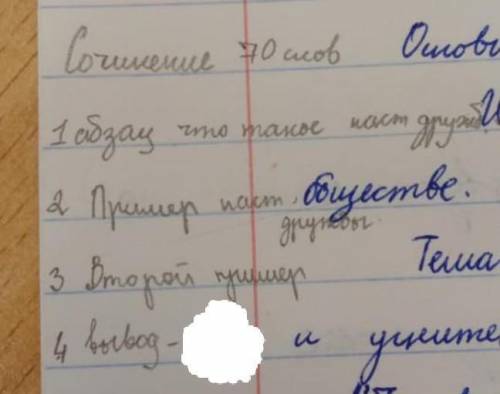 Сочинение 70 слов Основ
1 абзац что такое наст дружб. И
2 Пример наст. обществе.
дружбы
3 Второй пример Тема
4 вывод - и учите